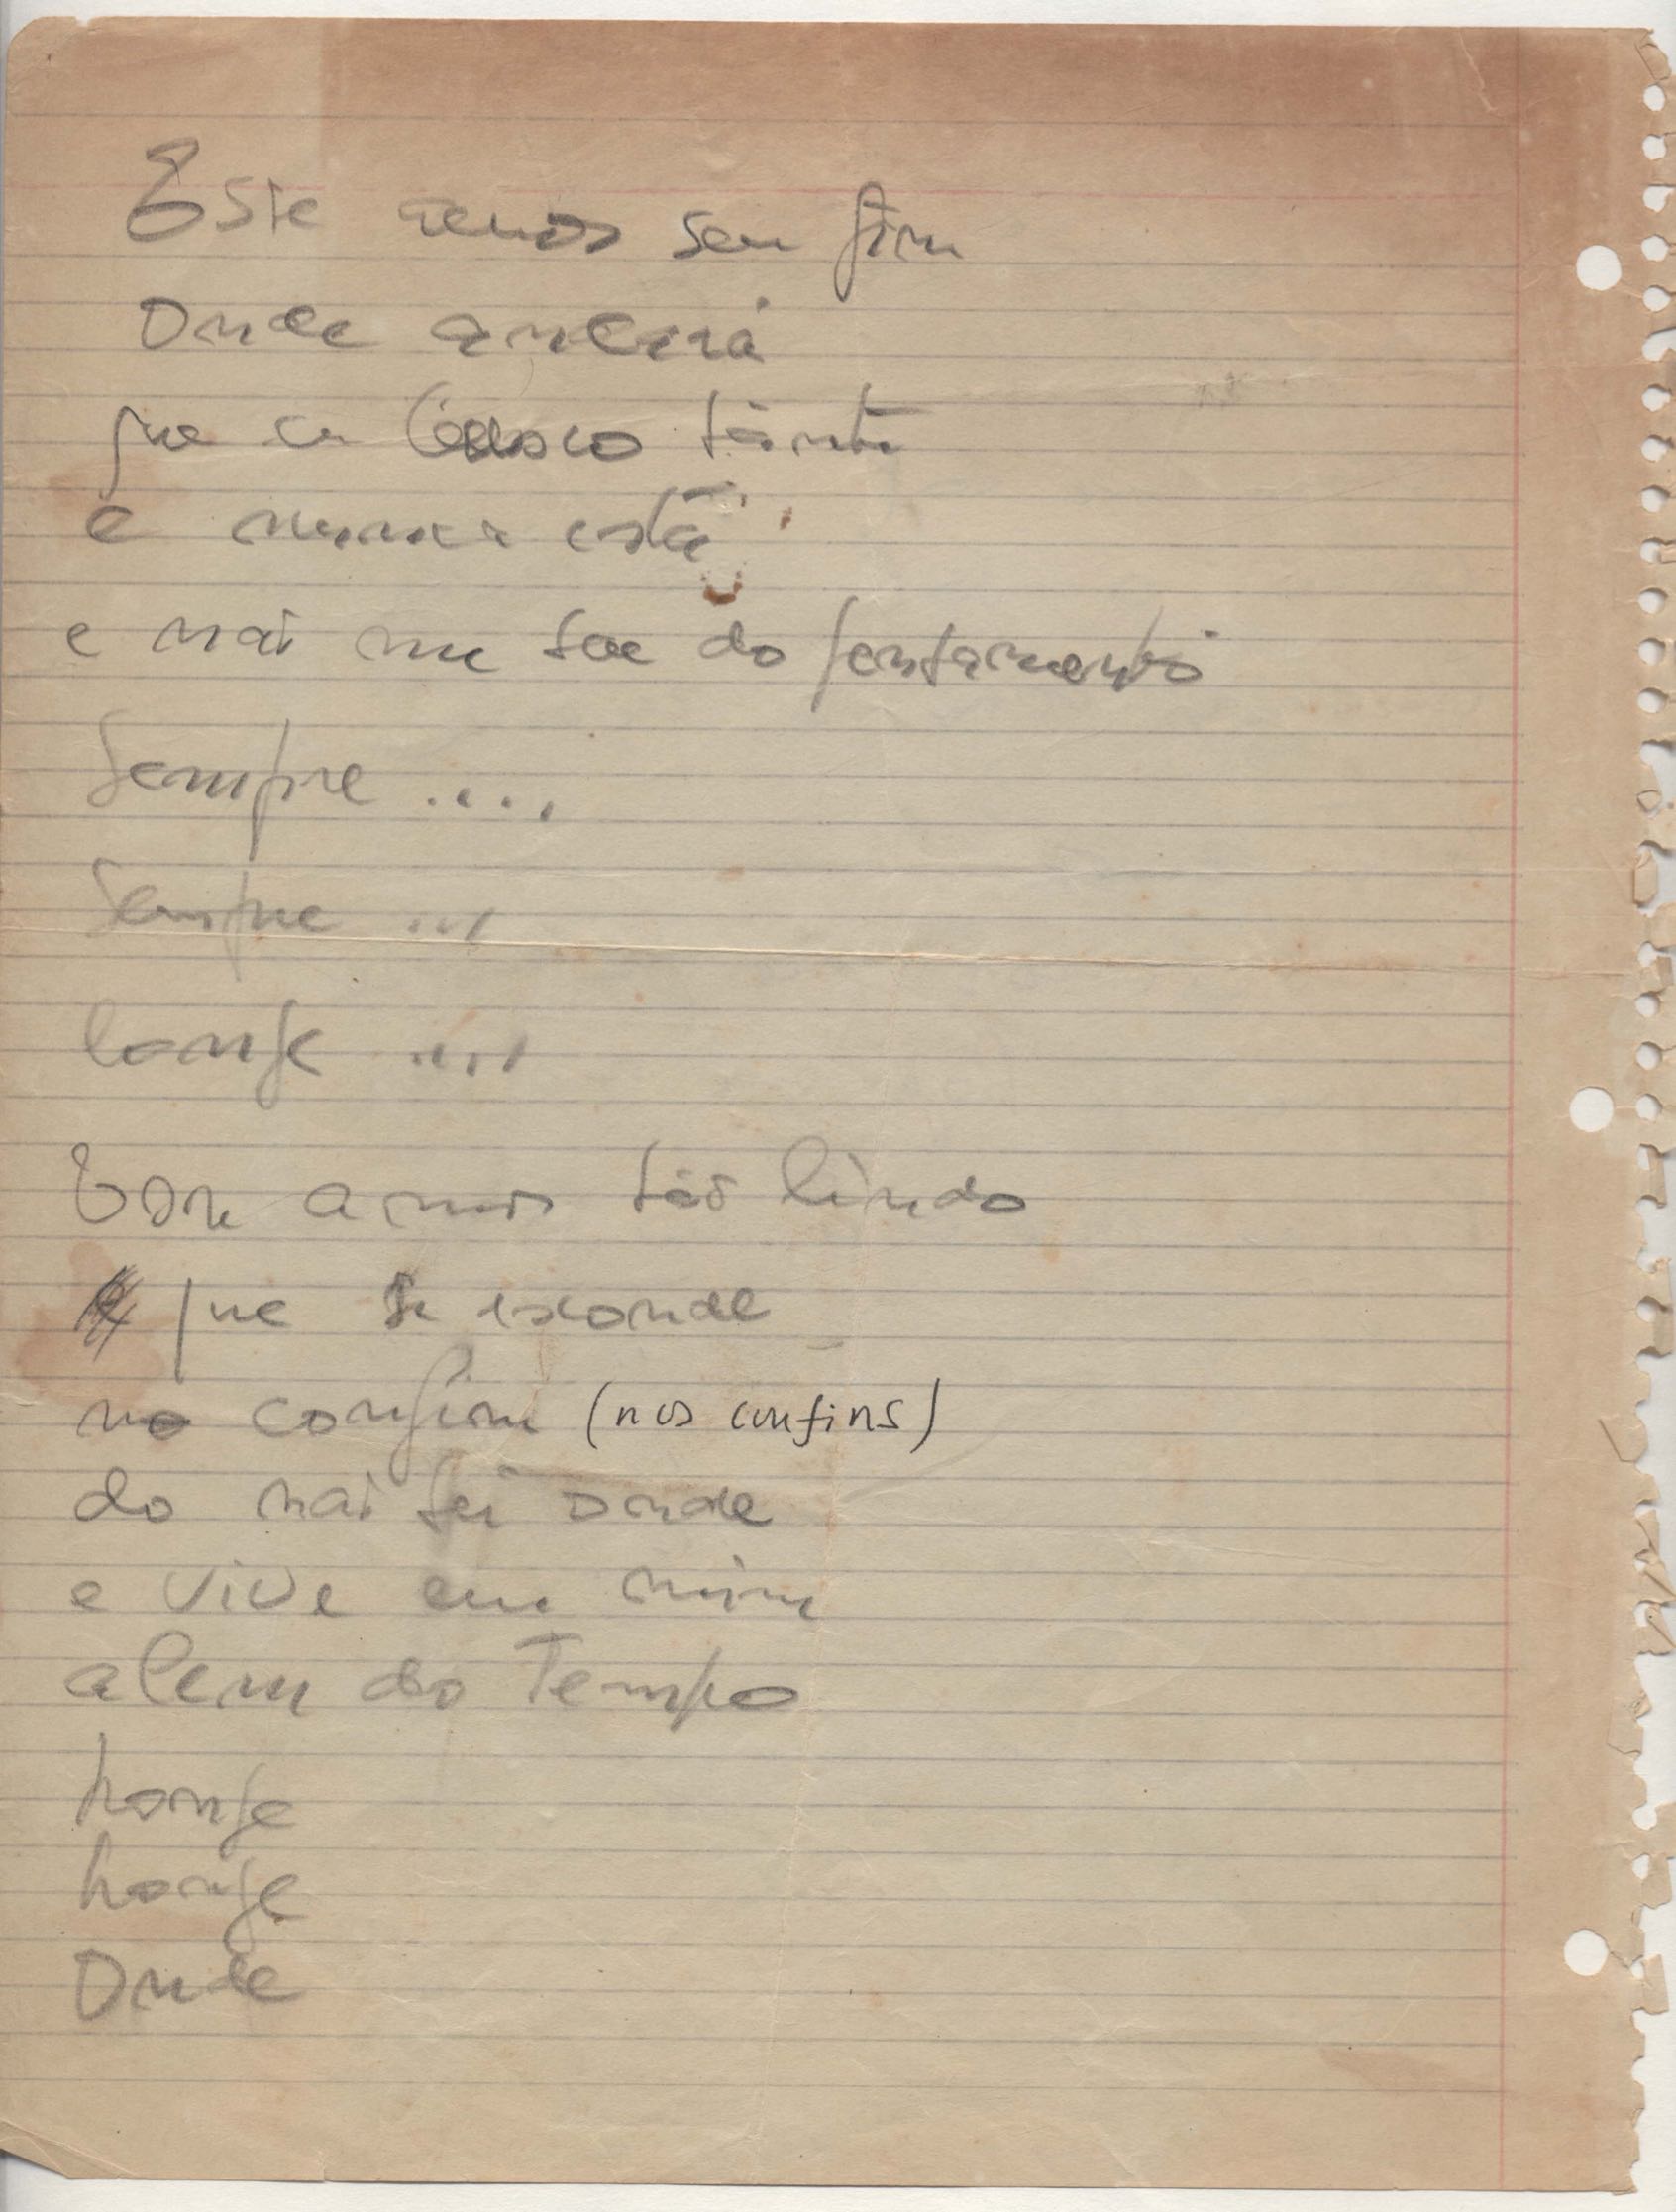 Este amor sem fim
Onde andará
que eu busco tanto
e nunca está
e não me sae do pensamento
Sempre ....
Sempre ...
longe ....
Esse amor tão lindo
que se esconde
no confim (nos confins)
do não sei onde
e vive em mim
alem do Tempo
Longe
Longe
Onde